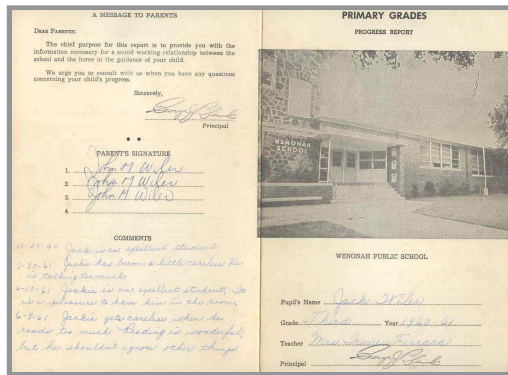 A MESSAGE TO PARENTS
DEAR PARENTS:
The chief purpose for this report is to provide you with the
information necessary for a sound working relationship between the
school and the home in the guidance of your child.
We urge you to consult with us when you have any questions
concerning your child's progress.
Sincerely,
Principal
PARENT'S SIGNATURE
1. John M Wiler
2. John M Wiler
3. John M Wiler
4.
COMMENTS
11-21-60 Jack is an excellent student
1-30-61 Jackie has become a little careless. He
is talking too much.
4-10-61 Jackie is an excellent student, It
is a pleasure to have him in the room.
6-9-61 Jackie gets careless when he
reads too much. Reading is wonderful,
but he shouldn't ignore other things
PRIMARY GRADES
PROGRESS REPORT
WENONAH
SCHOOL
WENONAH PUBLIC SCHOOL
Pupil's Name Jack Wiler
Grade Third Year 1960-61
Teacher Mrs. Ferrara
Principal